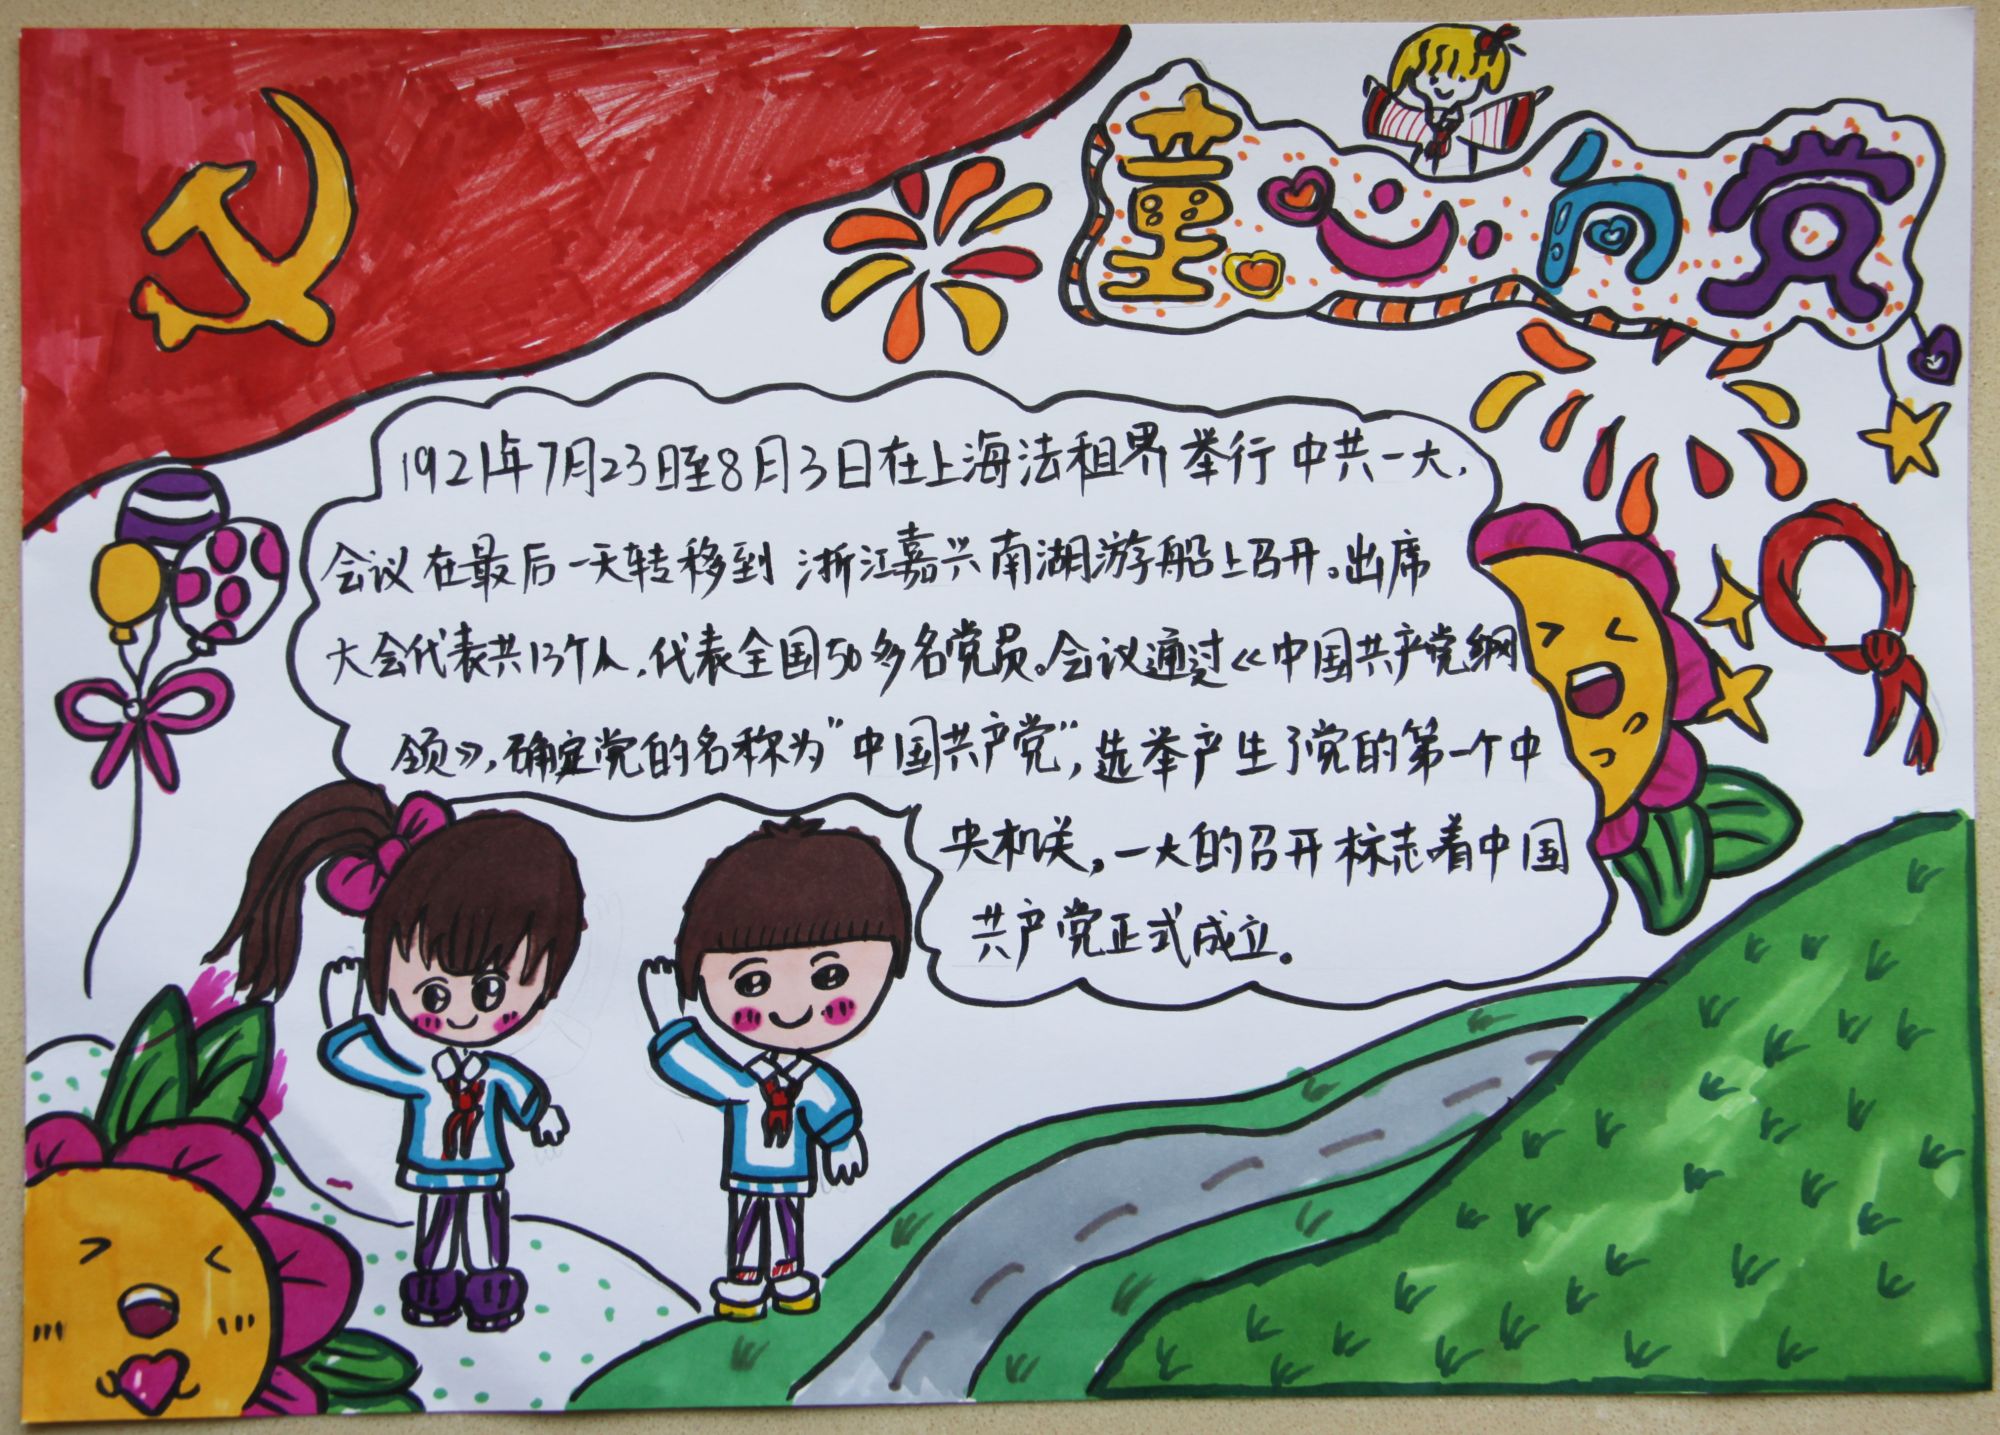 童心向党
1921年7月23日至8月3日在上海法租界举行中共一大,
会议在最后一天转移到浙江嘉兴南湖游船上召开。出席
大会代表共13个人,代表全国50多名党员。会议通过《中国共产党纲
领》,确定党的名称为"中国共产党",选举产生了党的第一个中
央机关,一大的召开标志着中国
共产党正式成立。